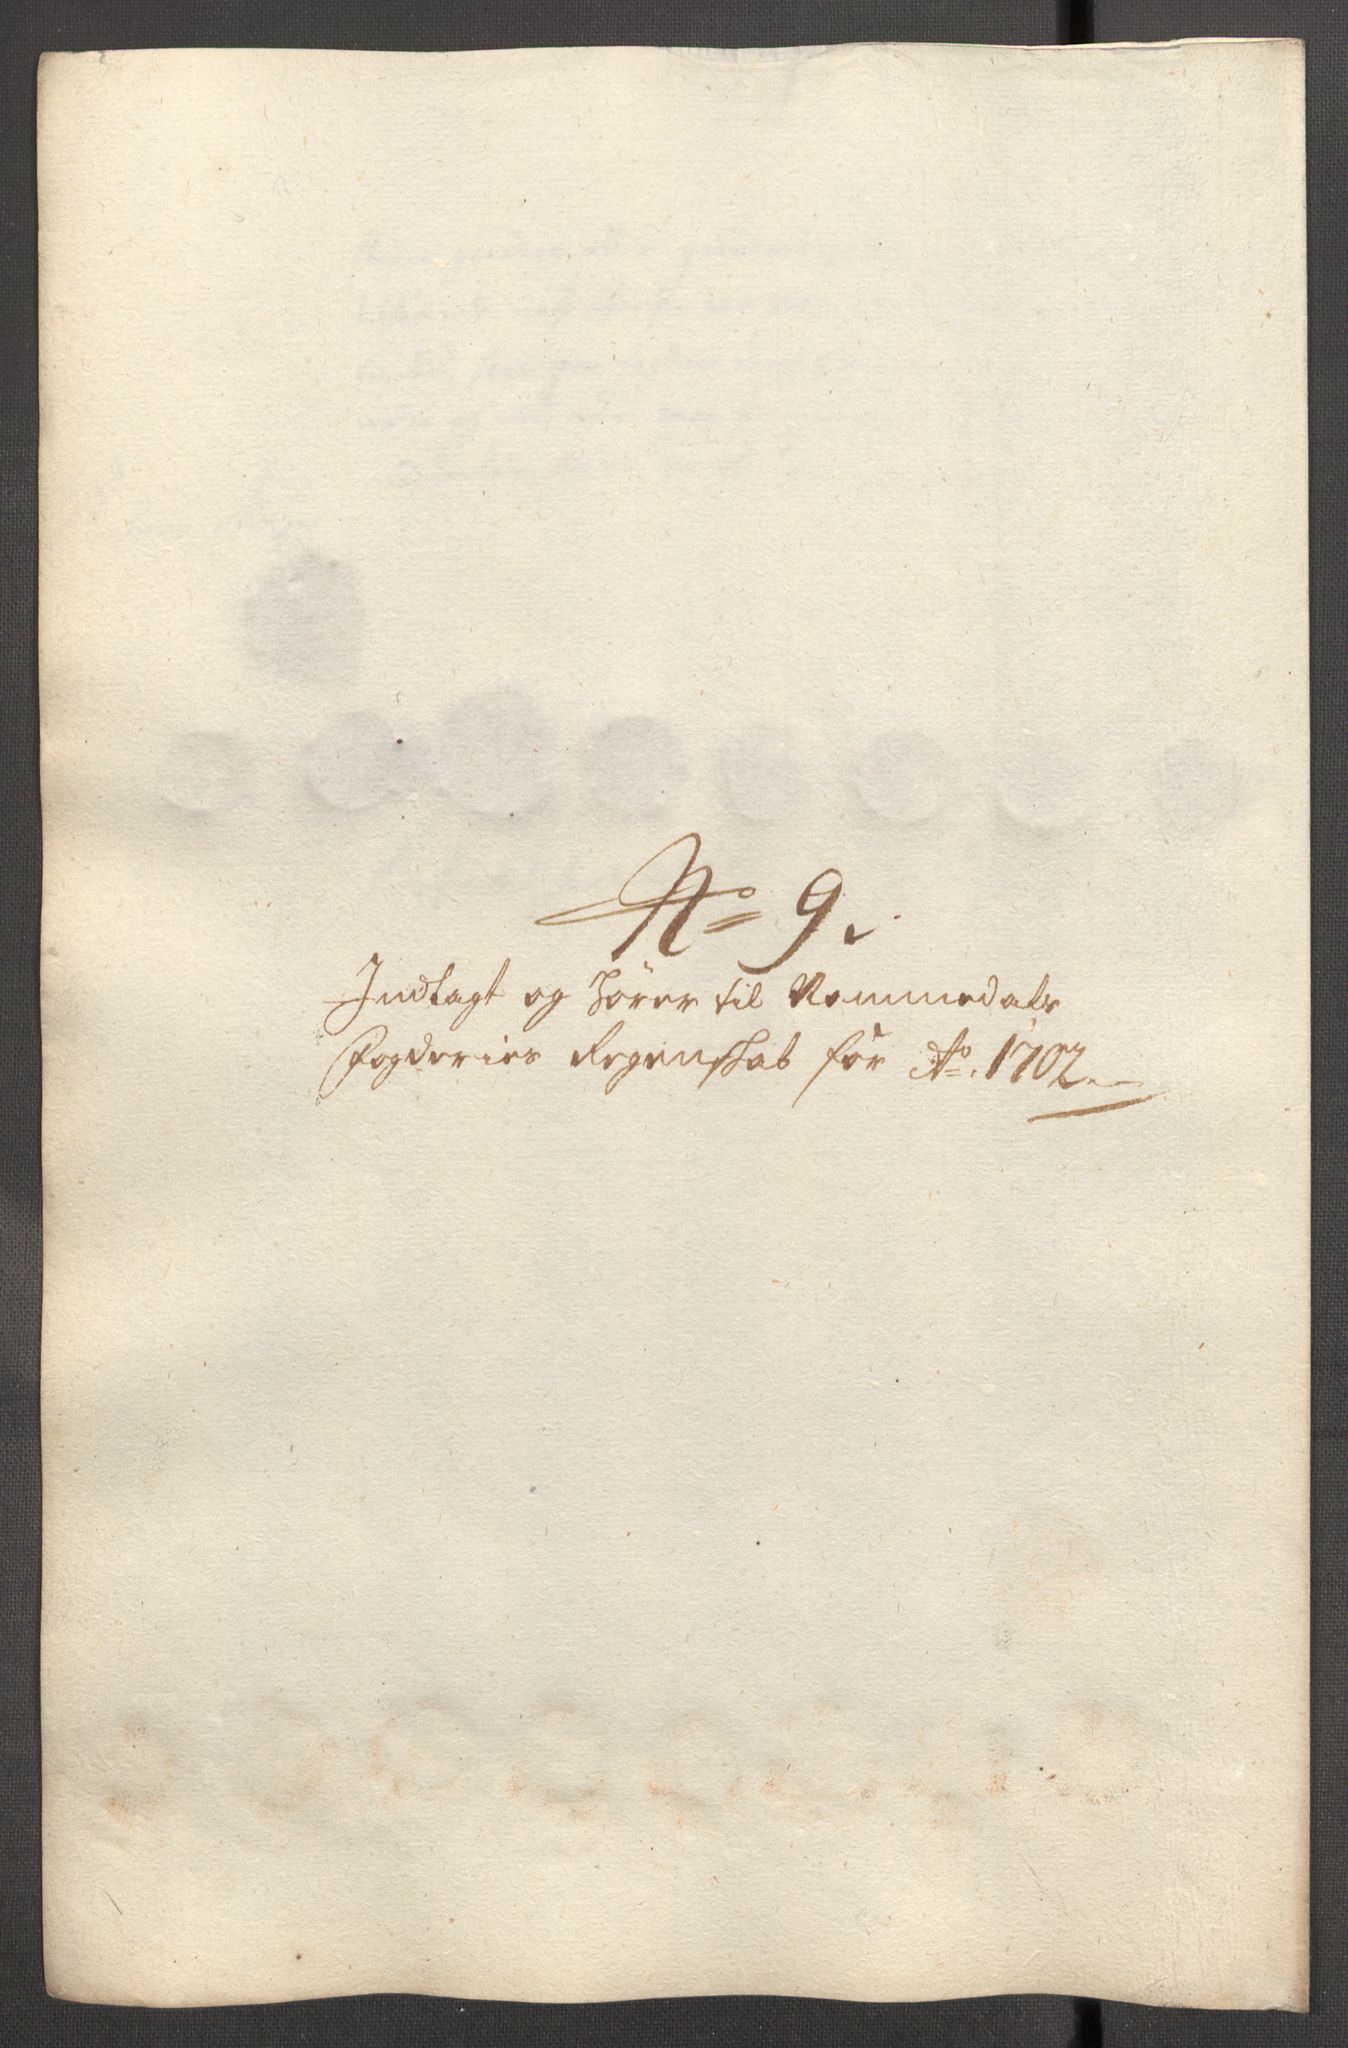 No 9.
Indlagt og hører til Nommedals
Fogderies Regenskab for Ao. 1702